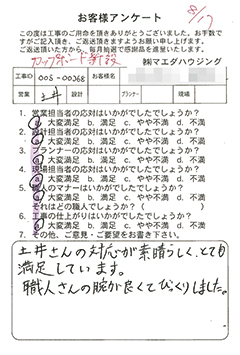 お客様アンケート
8/17
この度は工事のご用命を頂きありがとうございました。お手数で
すがご記入頂き、ご返送頂きますようお願い申し上げます。
ご返送頂いた方から、毎月抽選で感謝品を進呈いたします。
カップボード新設
㈱マエダハウジング
工事ID 005-00368 お客様名
営業 土井 設計 プランナー 現場
1. 営業担当者の応対はいかがでしたでしょうか?
a. 大変満足 b. 満足 c. やや不満 d. 不満
2. 設計担当者の応対はいかがでしたでしょうか?
a. 大変満足 b. 満足 c. やや不満 d. 不満
3. プランナーの応対はいかがでしたでしょうか?
a. 大変満足 b. 満足 c. やや不満 d. 不満
4. 現場担当者の応対はいかがでしたでしょうか?
a. 大変満足 b. 満足 c. やや不満 d. 不満
5. 職人のマナーはいかがでしたでしょうか?
a. 大変満足 b. 満足 c. やや不満 d. 不満
それはどの職人でしょうか? ( )
6. 工事の仕上がりはいかがでしたでしょうか?
a. 大変満足 b. 満足 c. やや不満 d. 不満
7. その他、ご意見・ご要望をお書き下さい。
土井さんの対応が素晴らしく、とても
満足しています。
職人さんの腕が良くてびっくりしました。